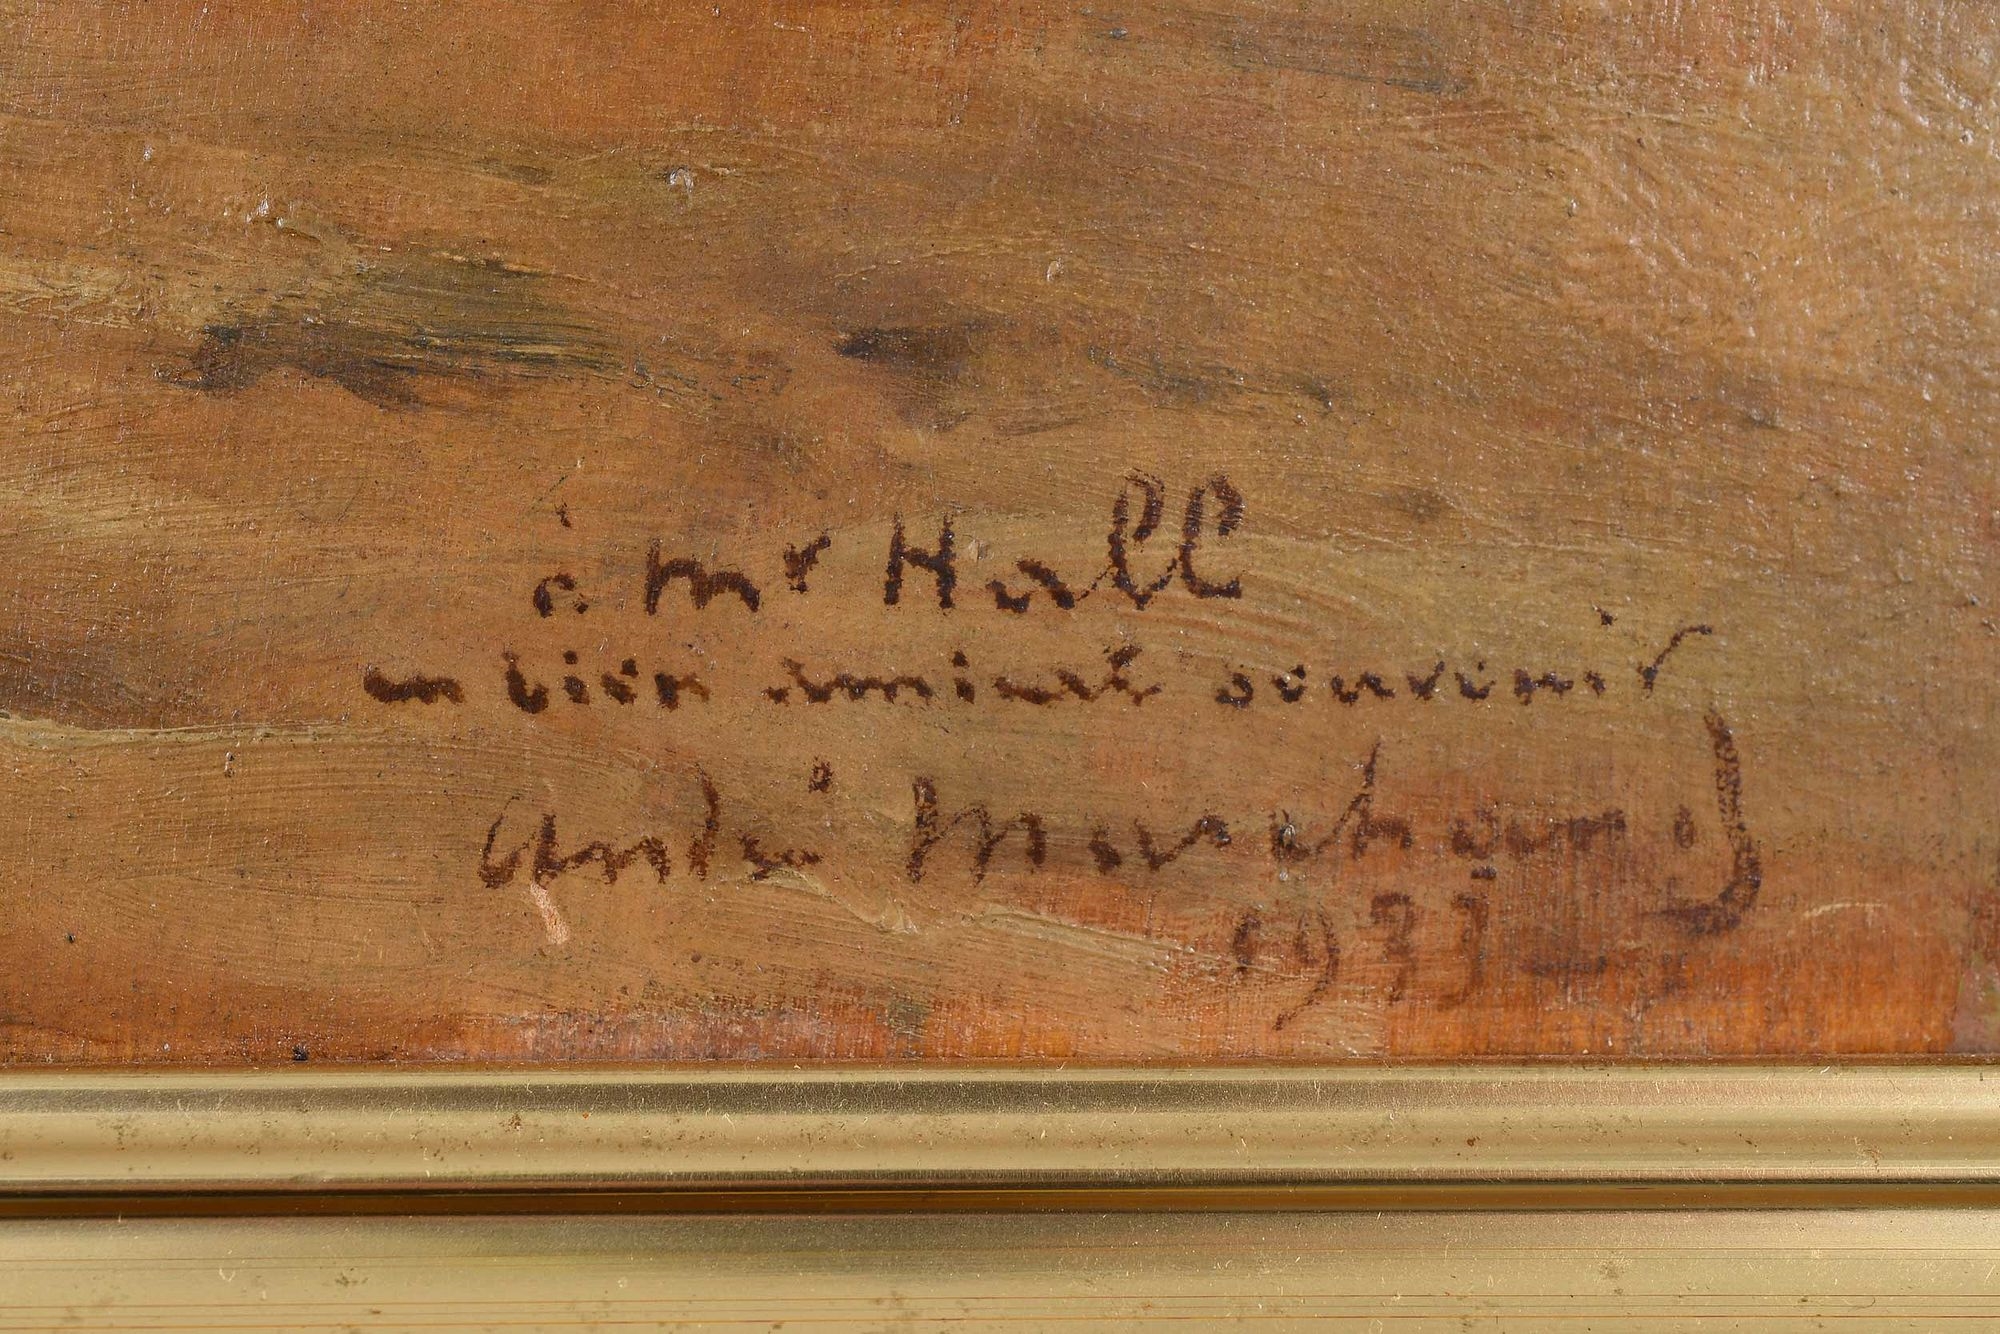 à Mr Hall
un bien amical souvenir
André Marchand
1933